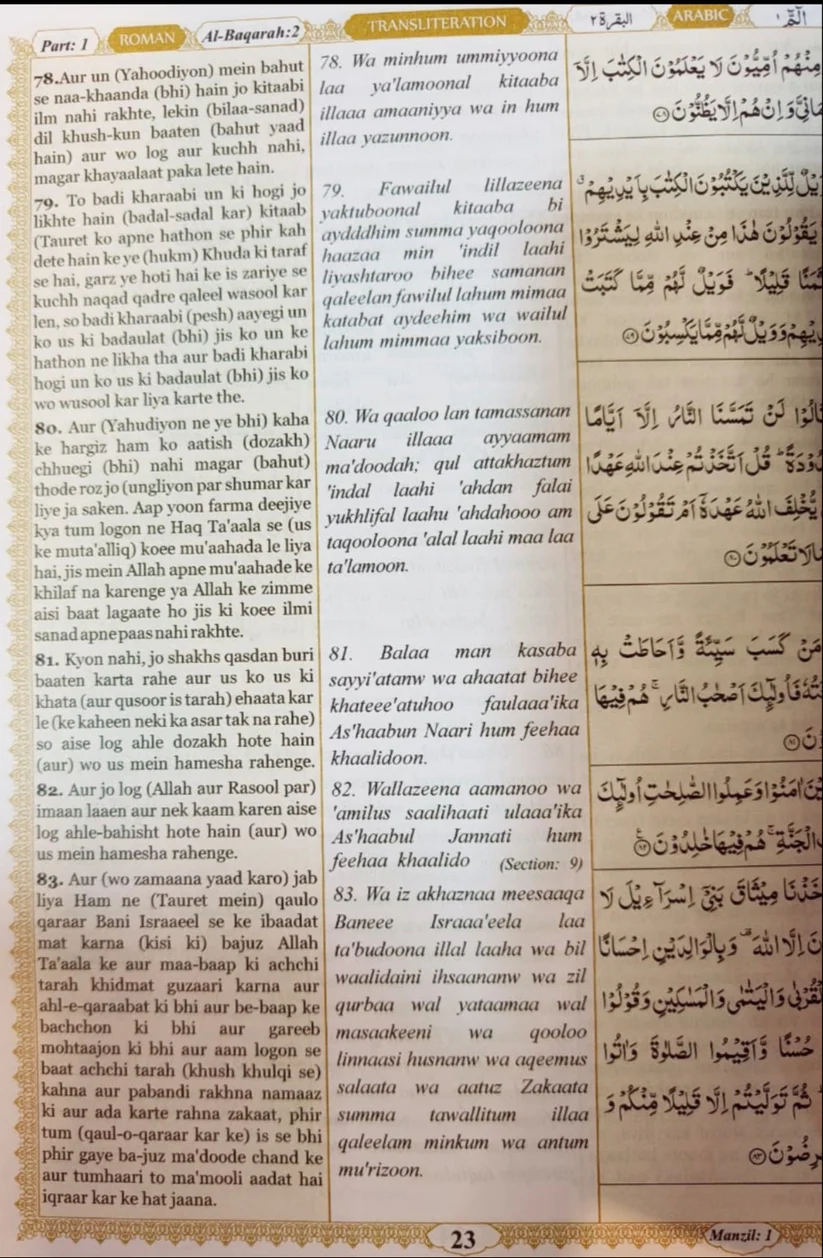 Part: 1
ROMAN
Al-Baqarah:2
TRANSLITERATION
البقرة ٢
ARABIC
الٓمّٓ ١
78.Aur un (Yahoodiyon) mein bahut
se naa-khaanda (bhi) hain jo kitaabi
ilm nahi rakhte, lekin (bilaa-sanad)
dil khush-kun baaten (bahut yaad
hain) aur wo log aur kuchh nahi,
magar khayaalaat paka lete hain.
79. To badi kharaabi un ki hogi jo
likhte hain (badal-sadal kar) kitaab
(Tauret ko apne hathon se phir kah
dete hain ke ye (hukm) Khuda ki taraf
se hai, garz ye hoti hai ke is zariye se
kuchh naqad qadre qaleel wasool kar
len, so badi kharaabi (pesh) aayegi un
ko us ki badaulat (bhi) jis ko un ke
hathon ne likha tha aur badi kharabi
hogi un ko us ki badaulat (bhi) jis ko
wo wusool kar liya karte the.
80. Aur (Yahudiyon ne ye bhi) kaha
ke hargiz ham ko aatish (dozakh)
chhuegi (bhi) nahi magar (bahut)
thode roz jo (ungliyon par shumar kar
liye ja saken. Aap yoon farma deejiye
kya tum logon ne Haq Ta'aala se (us
ke muta'alliq) koee mu'aahada le liya
hai, jis mein Allah apne mu'aahade ke
khilaf na karenge ya Allah ke zimme
aisi baat lagaate ho jis ki koee ilmi
sanad apne paas nahi rakhte.
81. Kyon nahi, jo shakhs qasdan buri
baaten karta rahe aur us ko us ki
khata (aur qusoor is tarah) ehaata kar
le (ke kaheen neki ka asar tak na rahe)
so aise log ahle dozakh hote hain
(aur) wo us mein hamesha rahenge.
82. Aur jo log (Allah aur Rasool par)
imaan laaen aur nek kaam karen aise
log ahle-bahisht hote hain (aur) wo
us mein hamesha rahenge.
83. Aur (wo zamaana yaad karo) jab
liya Ham ne (Tauret mein) qaulo
qaraar Bani Israaeel se ke ibaadat
mat karna (kisi ki) bajuz Allah
Ta'aala ke aur maa-baap ki achchi
tarah khidmat guzaari karna aur
ahl-e-qaraabat ki bhi aur be-baap ke
bachchon ki bhi aur gareeb
mohtaajon ki bhi aur aam logon se
baat achchi tarah (khush khulqi se)
kahna aur pabandi rakhna namaaz
ki aur ada karte rahna zakaat, phir
tum (qaul-o-qaraar kar ke) is se bhi
phir gaye ba-juz ma'doode chand ke
aur tumhaari to ma'mooli aadat hai
iqraar kar ke hat jaana.
78. Wa minhum ummiyyoona
laa ya'lamoonal kitaaba
illaaa amaaniyya wa in hum
illaa yazunnoon.
79. Fawailul lillazeena
yaktuboonal kitaaba bi
aydddhim summa yaqooloona
haazaa min 'indil laahi
liyashtaroo bihee samanan
qaleelan fawilul lahum mimaa
katabat aydeehim wa wailul
lahum mimmaa yaksiboon.
80. Wa qaaloo lan tamassanan
Naaru illaaa ayyaamam
ma'doodah; qul attakhaztum
'indal laahi 'ahdan falai
yukhlifal laahu 'ahdahooo am
taqooloona 'alal laahi maa laa
ta'lamoon.
81. Balaa man kasaba
sayyi'atanw wa ahaatat bihee
khateee'atuhoo faulaaa'ika
As'haabun Naari hum feehaa
khaalidoon.
82. Wallazeena aamanoo wa
'amilus saalihaati ulaaa'ika
As'haabul Jannati hum
feehaa khaalido (Section: 9)
83. Wa iz akhaznaa meesaaqa
Baneee Israaa'eela laa
ta'budoona illal laaha wa bil
waalidaini ihsaananw wa zil
qurbaa wal yataamaa wal
masaakeeni wa qooloo
linnaasi husnanw wa aqeemus
salaata wa aatuz Zakaata
summa tawallitum illaa
qaleelam minkum wa antum
mu'rizoon.
مِنْهُمْ اُمِّيُّوْنَ لَا يَعْلَمُوْنَ الْكِتٰبَ اِلَّاۤ
وَاِنْ هُمْ اِلَّا يَظُنُّوْنَ ۝٧٨
لِّلَّذِيْنَ يَكْتُبُوْنَ الْكِتٰبَ بِاَيْدِيْهِمْ ۗ
يَقُوْلُوْنَ هٰذَا مِنْ عِنْدِ اللهِ لِيَشْتَرُوْا
ثَمَنًا قَلِيْلًا ؕ فَوَيْلٌ لَّهُمْ مِّمَّا كَتَبَتْ
وَوَيْلٌ لَّهُمْ مِّمَّا يَكْسِبُوْنَ ۝٧٩
قَالُوْا لَنْ تَمَسَّنَا النَّارُ اِلَّاۤ اَيَّامًا
قُلْ اَتَّخَذْتُمْ عِنْدَ اللهِ عَهْدًا
يُّخْلِفَ اللهُ عَهْدَهٗۤ اَمْ تَقُوْلُوْنَ عَلَى
مَا لَا تَعْلَمُوْنَ ۝٨٠
مَنْ كَسَبَ سَيِّئَةً وَّاَحَاطَتْ بِهٖ
فَاُولٰٓئِكَ اَصْحٰبُ النَّارِ ۚ هُمْ فِيْهَا
۝٨١
اٰمَنُوْا وَعَمِلُوا الصّٰلِحٰتِ اُولٰٓئِكَ
الْجَنَّةِ ۚ هُمْ فِيْهَا خٰلِدُوْنَ ۝٨٢
مِيْثَاقَ بَنِيْۤ اِسْرَآءِيْلَ لَا
اِلَّا اللهَ ۫ وَبِالْوَالِدَيْنِ اِحْسَانًا
الْقُرْبٰى وَالْيَتٰمٰى وَالْمَسٰكِيْنِ وَقُوْلُوْا
حُسْنًا وَّاَقِيْمُوا الصَّلٰوةَ وَاٰتُوا
ثُمَّ تَوَلَّيْتُمْ اِلَّا قَلِيْلًا مِّنْكُمْ وَ
۝٨٣
23
Manzil: 1